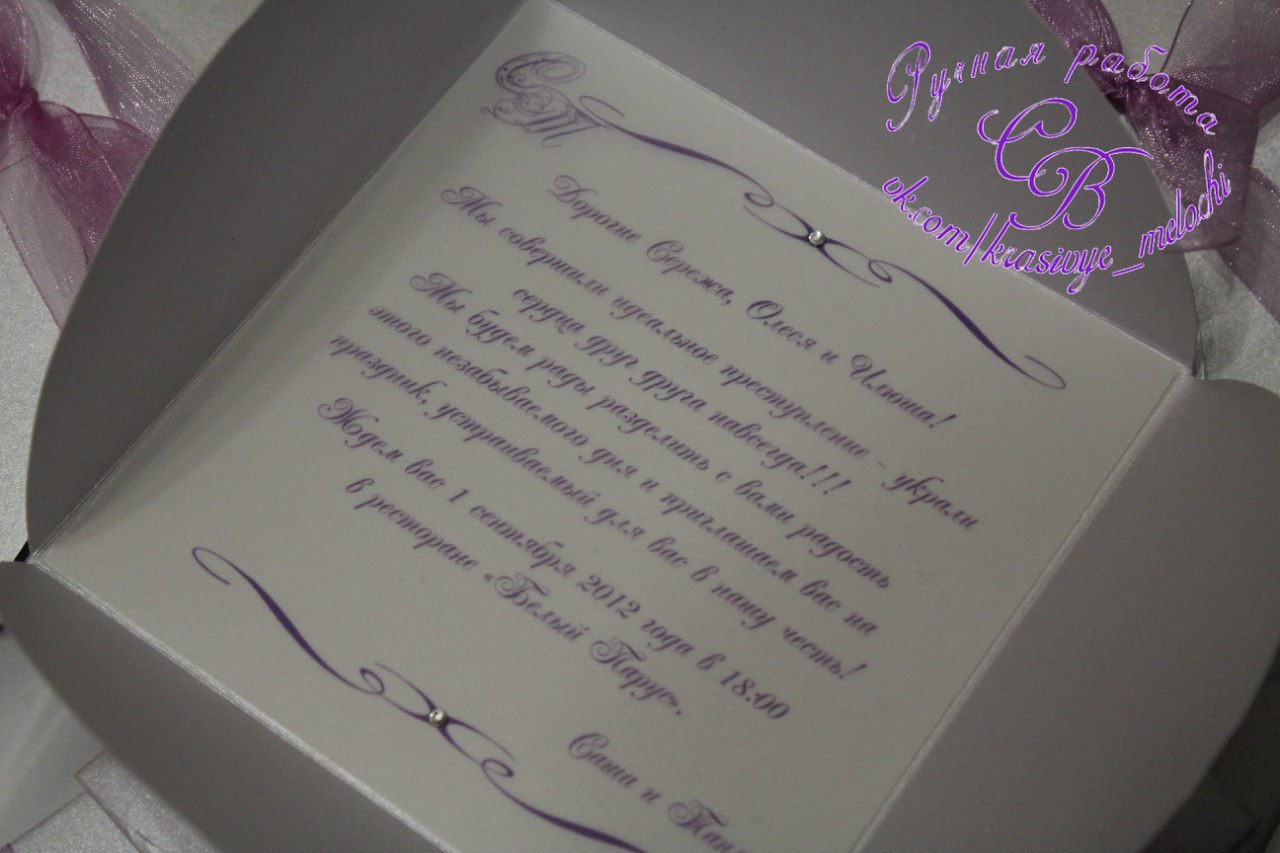 СТ
Дорогие Сережа, Олеся и Илюша!
Мы совершили идеальное преступление - украли
сердца друг друга навсегда!!!
Мы будем рады разделить с вами радость
этого незабываемого дня и приглашаем вас на
праздник, устраиваемый для вас в нашу честь!
Ждем вас 1 сентября 2012 года в 18:00
в ресторане «Белый Парус».
Саша и
Ручная работа
СВ
ok.com/krasivye_melochi